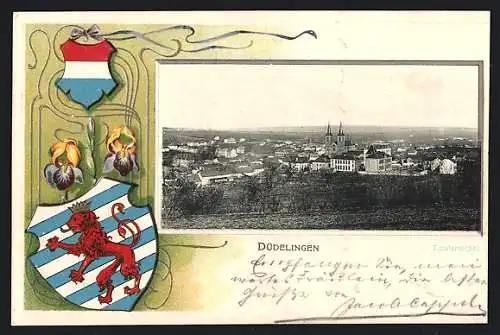 DÜDELINGEN
Totalansicht
Empfangen Sie, mein
wertes Fräulein, die besten
Grüße von
Jacob Cappel